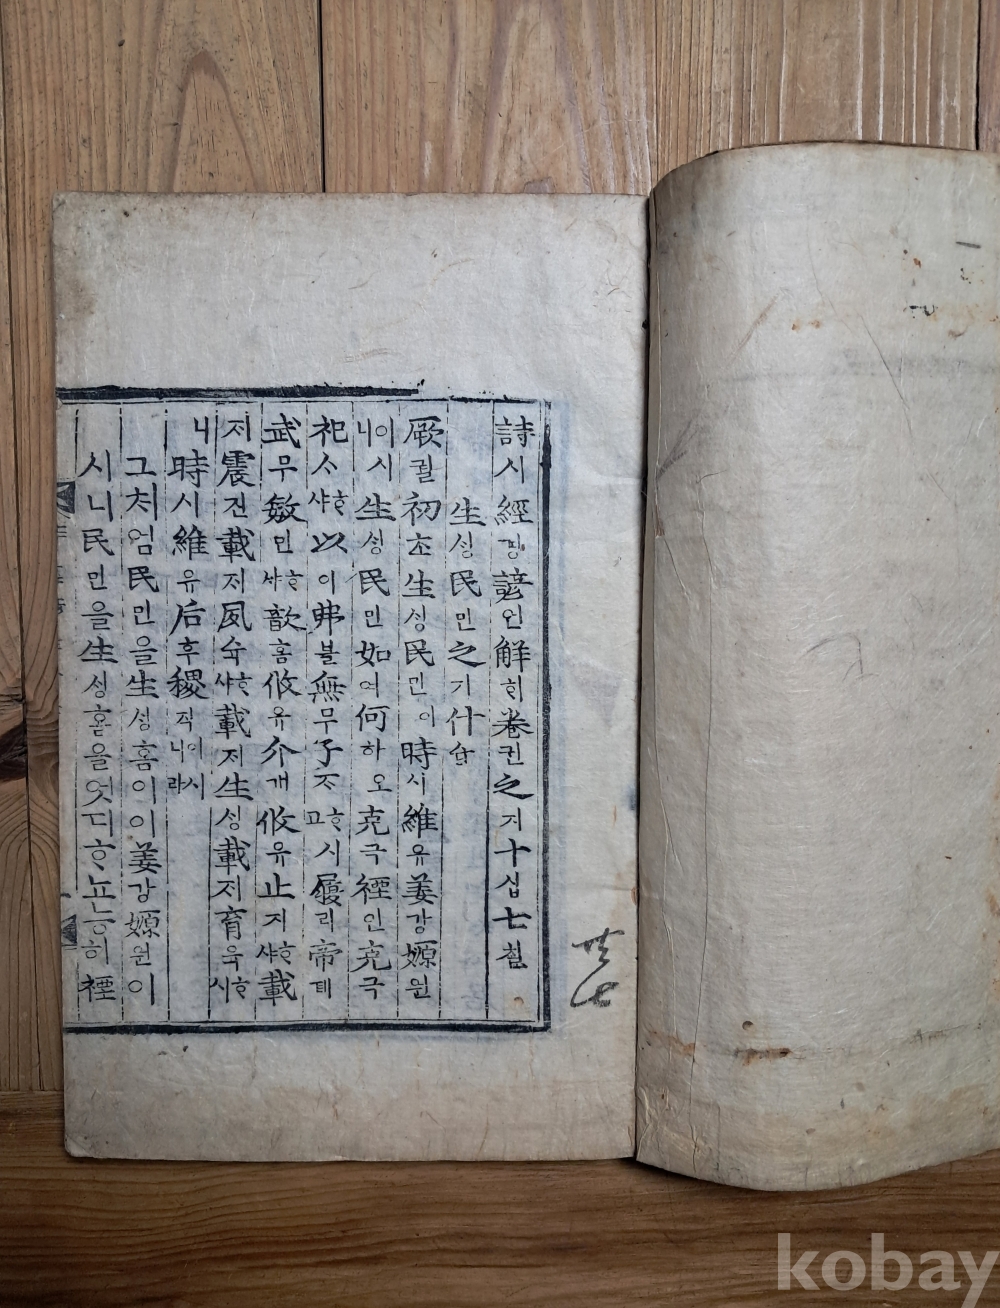 詩시經경諺언解ᄒᆡ卷권之지十십七칠
生ᄉᆡᆼ民민之지什십
厥궐初초生ᄉᆡᆼ民민이時시維유姜강嫄원
이시니生ᄉᆡᆼ民민如여何하오克극禋인克극
祀ᄉᆞᄒᆞ샤以이弗불無무子ᄌᆞᄒᆞ고시履리帝뎨
武무敏민ᄒᆞ샤歆흠攸유介개攸유止지ᄒᆞ샤載
ᄌᆡ震진載ᄌᆡ夙슉ᄒᆞ샤載ᄌᆡ生ᄉᆡᆼ載ᄌᆡ育육ᄒᆞ시
니時시維유后후稷직이시니라
그처엄民민을生ᄉᆡᆼ홈이이姜강嫄원이
시니民민을生ᄉᆡᆼ홈을엇디ᄒᆞ뇨능히禋
kobay